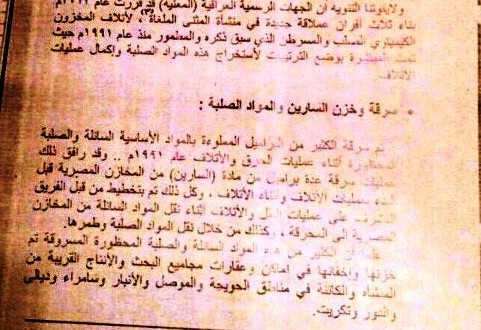 ولايفوتنا التنويه ان الجهات الرسمية العراقية (المعنية) قد قررت عام
بناء ثلاث أفران عملاقة جديدة في منشأة المثنى الملغاة لأتلاف المخزون
الكيمياوي الصلب والمسرطن الذي سبق ذكره والمطمور منذ عام ١٩٩١م حيث
تمت المباشرة بوضع الترتيبات لأستخراج هذه المواد الصلبة وإكمال عمليات
الأتلاف.
• سرقة وخزن السارين والمواد الصلبة :
تم سرقة الكثير من البراميل المملوءة بالمواد الأساسية السائلة والصلبة
المحظورة أثناء عمليات الحرق والأتلاف عام ١٩٩١م .. وقد رافق ذلك
عمليات سرقة عدة براميل من مادة (السارين) من المخازن المصرية قبل
عمليات الأتلاف وأثناء الأتلاف ، وكل ذلك تم بتخطيط من قبل الفريق
المشرف على عمليات النقل والأتلاف أثناء نقل المواد السائلة من المخازن
المصرية الى المحرقة ، وكذلك من خلال نقل المواد الصلبة وطمرها.
الكثير من هذه المواد السائلة والصلبة المحظورة المسروقة تم
خزنها وإخفائها في أماكن وعقارات مجاميع البحث والأنتاج القريبة من
المنشأة والكائنة في مناطق الحويجة والموصل والأنبار وسامراء وديالى
والدور وتكريت.